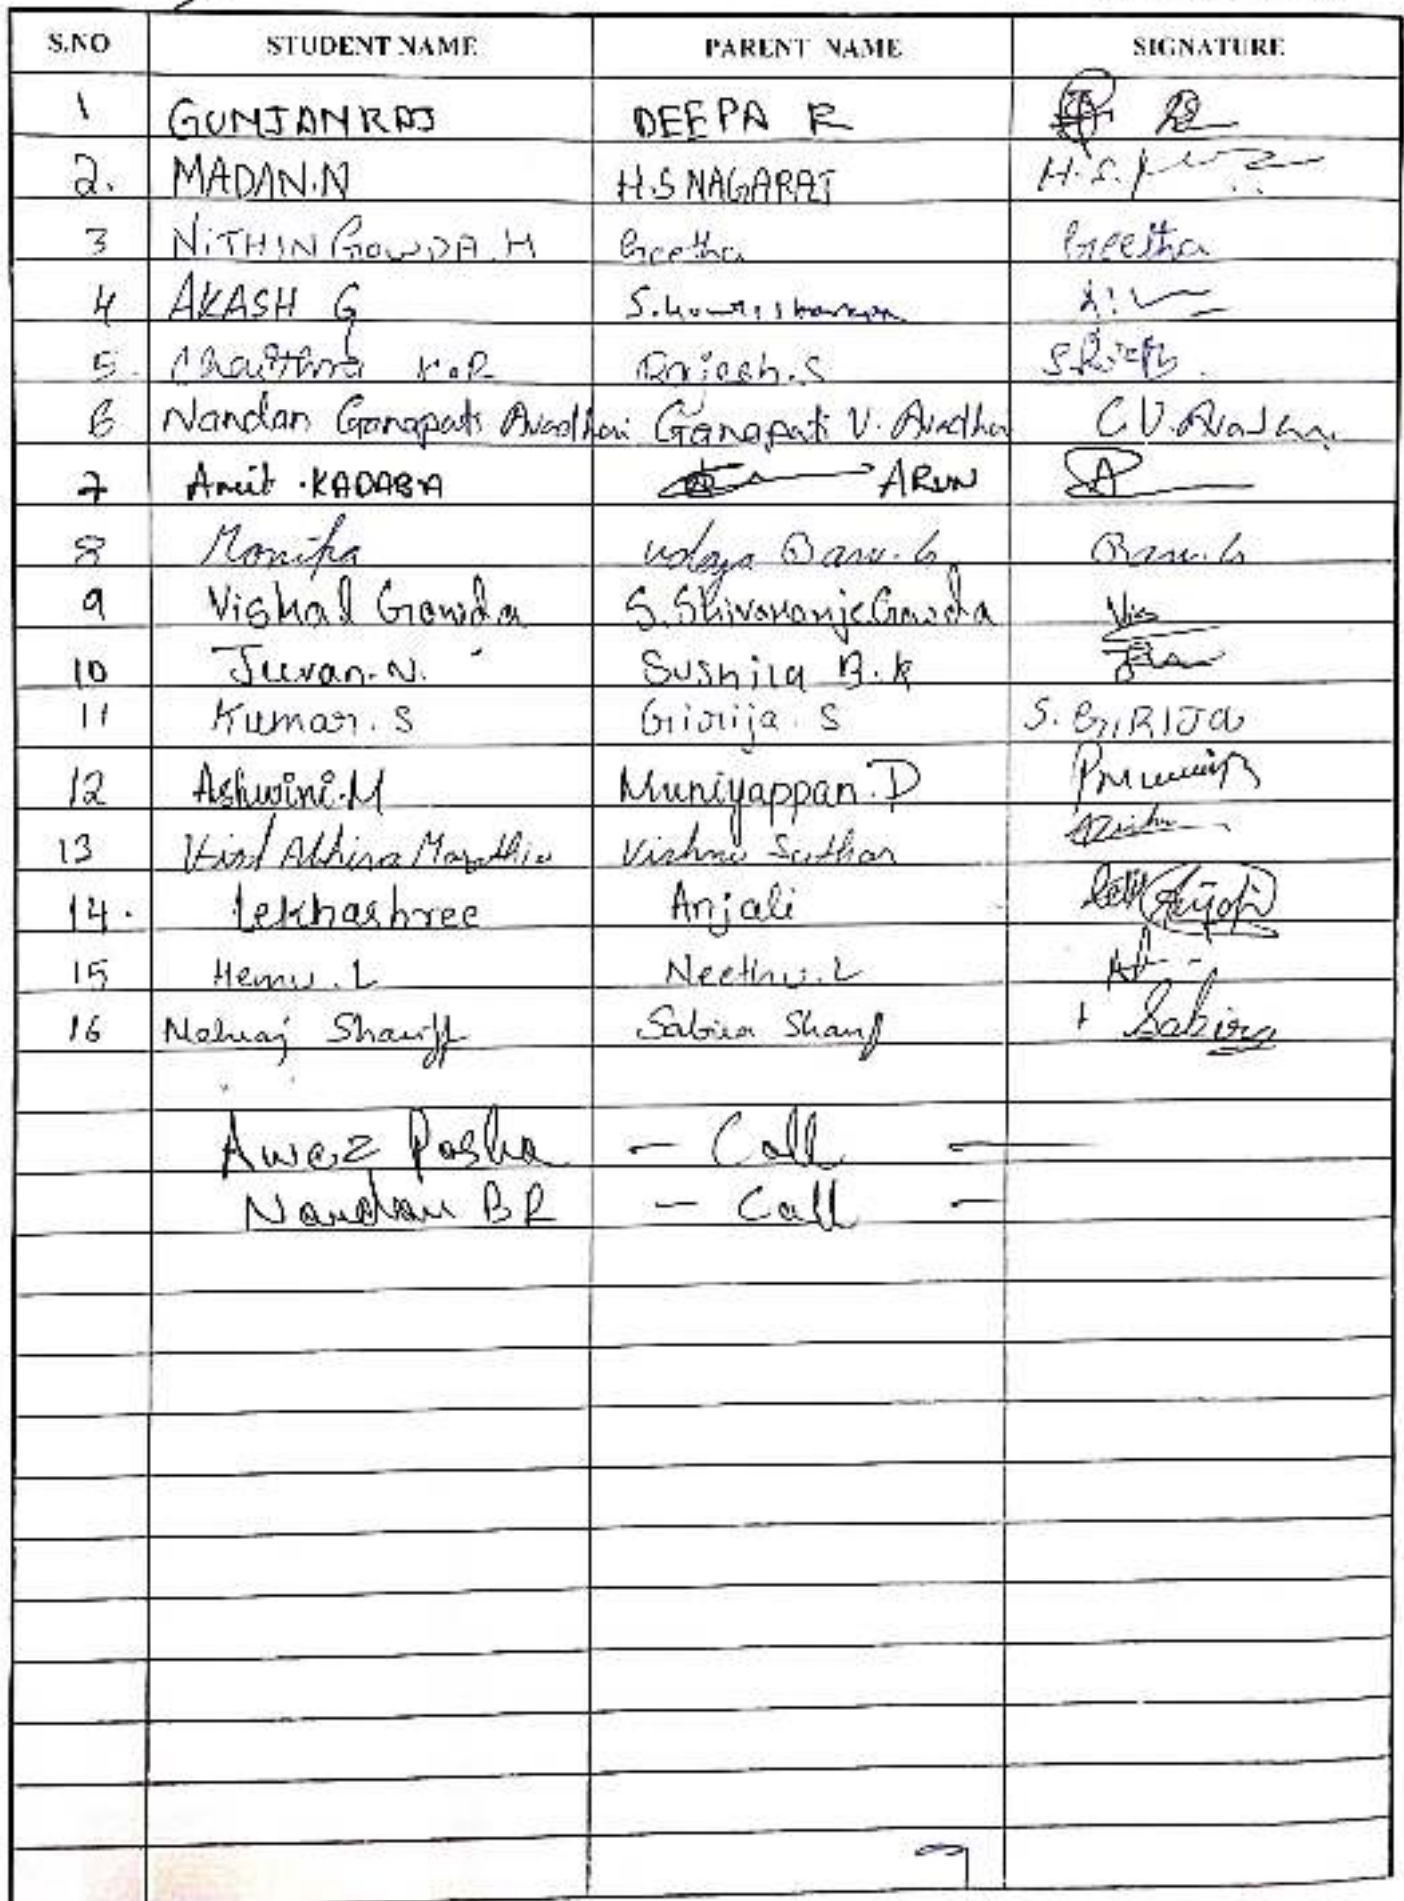 S.NO STUDENT NAME PARENT NAME SIGNATURE
1 GUNJANRAJ DEEPA R
2. MADAN.N H.S NAGARAJ H.S.
3 NiTHIN GowDA.H Geetha Geetha
4 AKASH G
5. Chaithra K.R Rajesh.S
6 Nandan Ganapati Avadhani Ganapati V. Avadhani
7 Amit .KADABA ARUN
8 Monika Udaya Banu.G Banu.G
9 Vishal Gowda S.
10 Jeevan.N. Sushila B.K
11 Kumar.S Girija.S S. GIRIJa
12 Ashwini.M Muniyappan.D
13 Vishnu Suthar
14. Lekhashree Anjali
15 Hemu.L Neethu.L
16 Shariff Sabira Sharif Sabira
Awez Pasha - Call -
Nandan BR - Call -